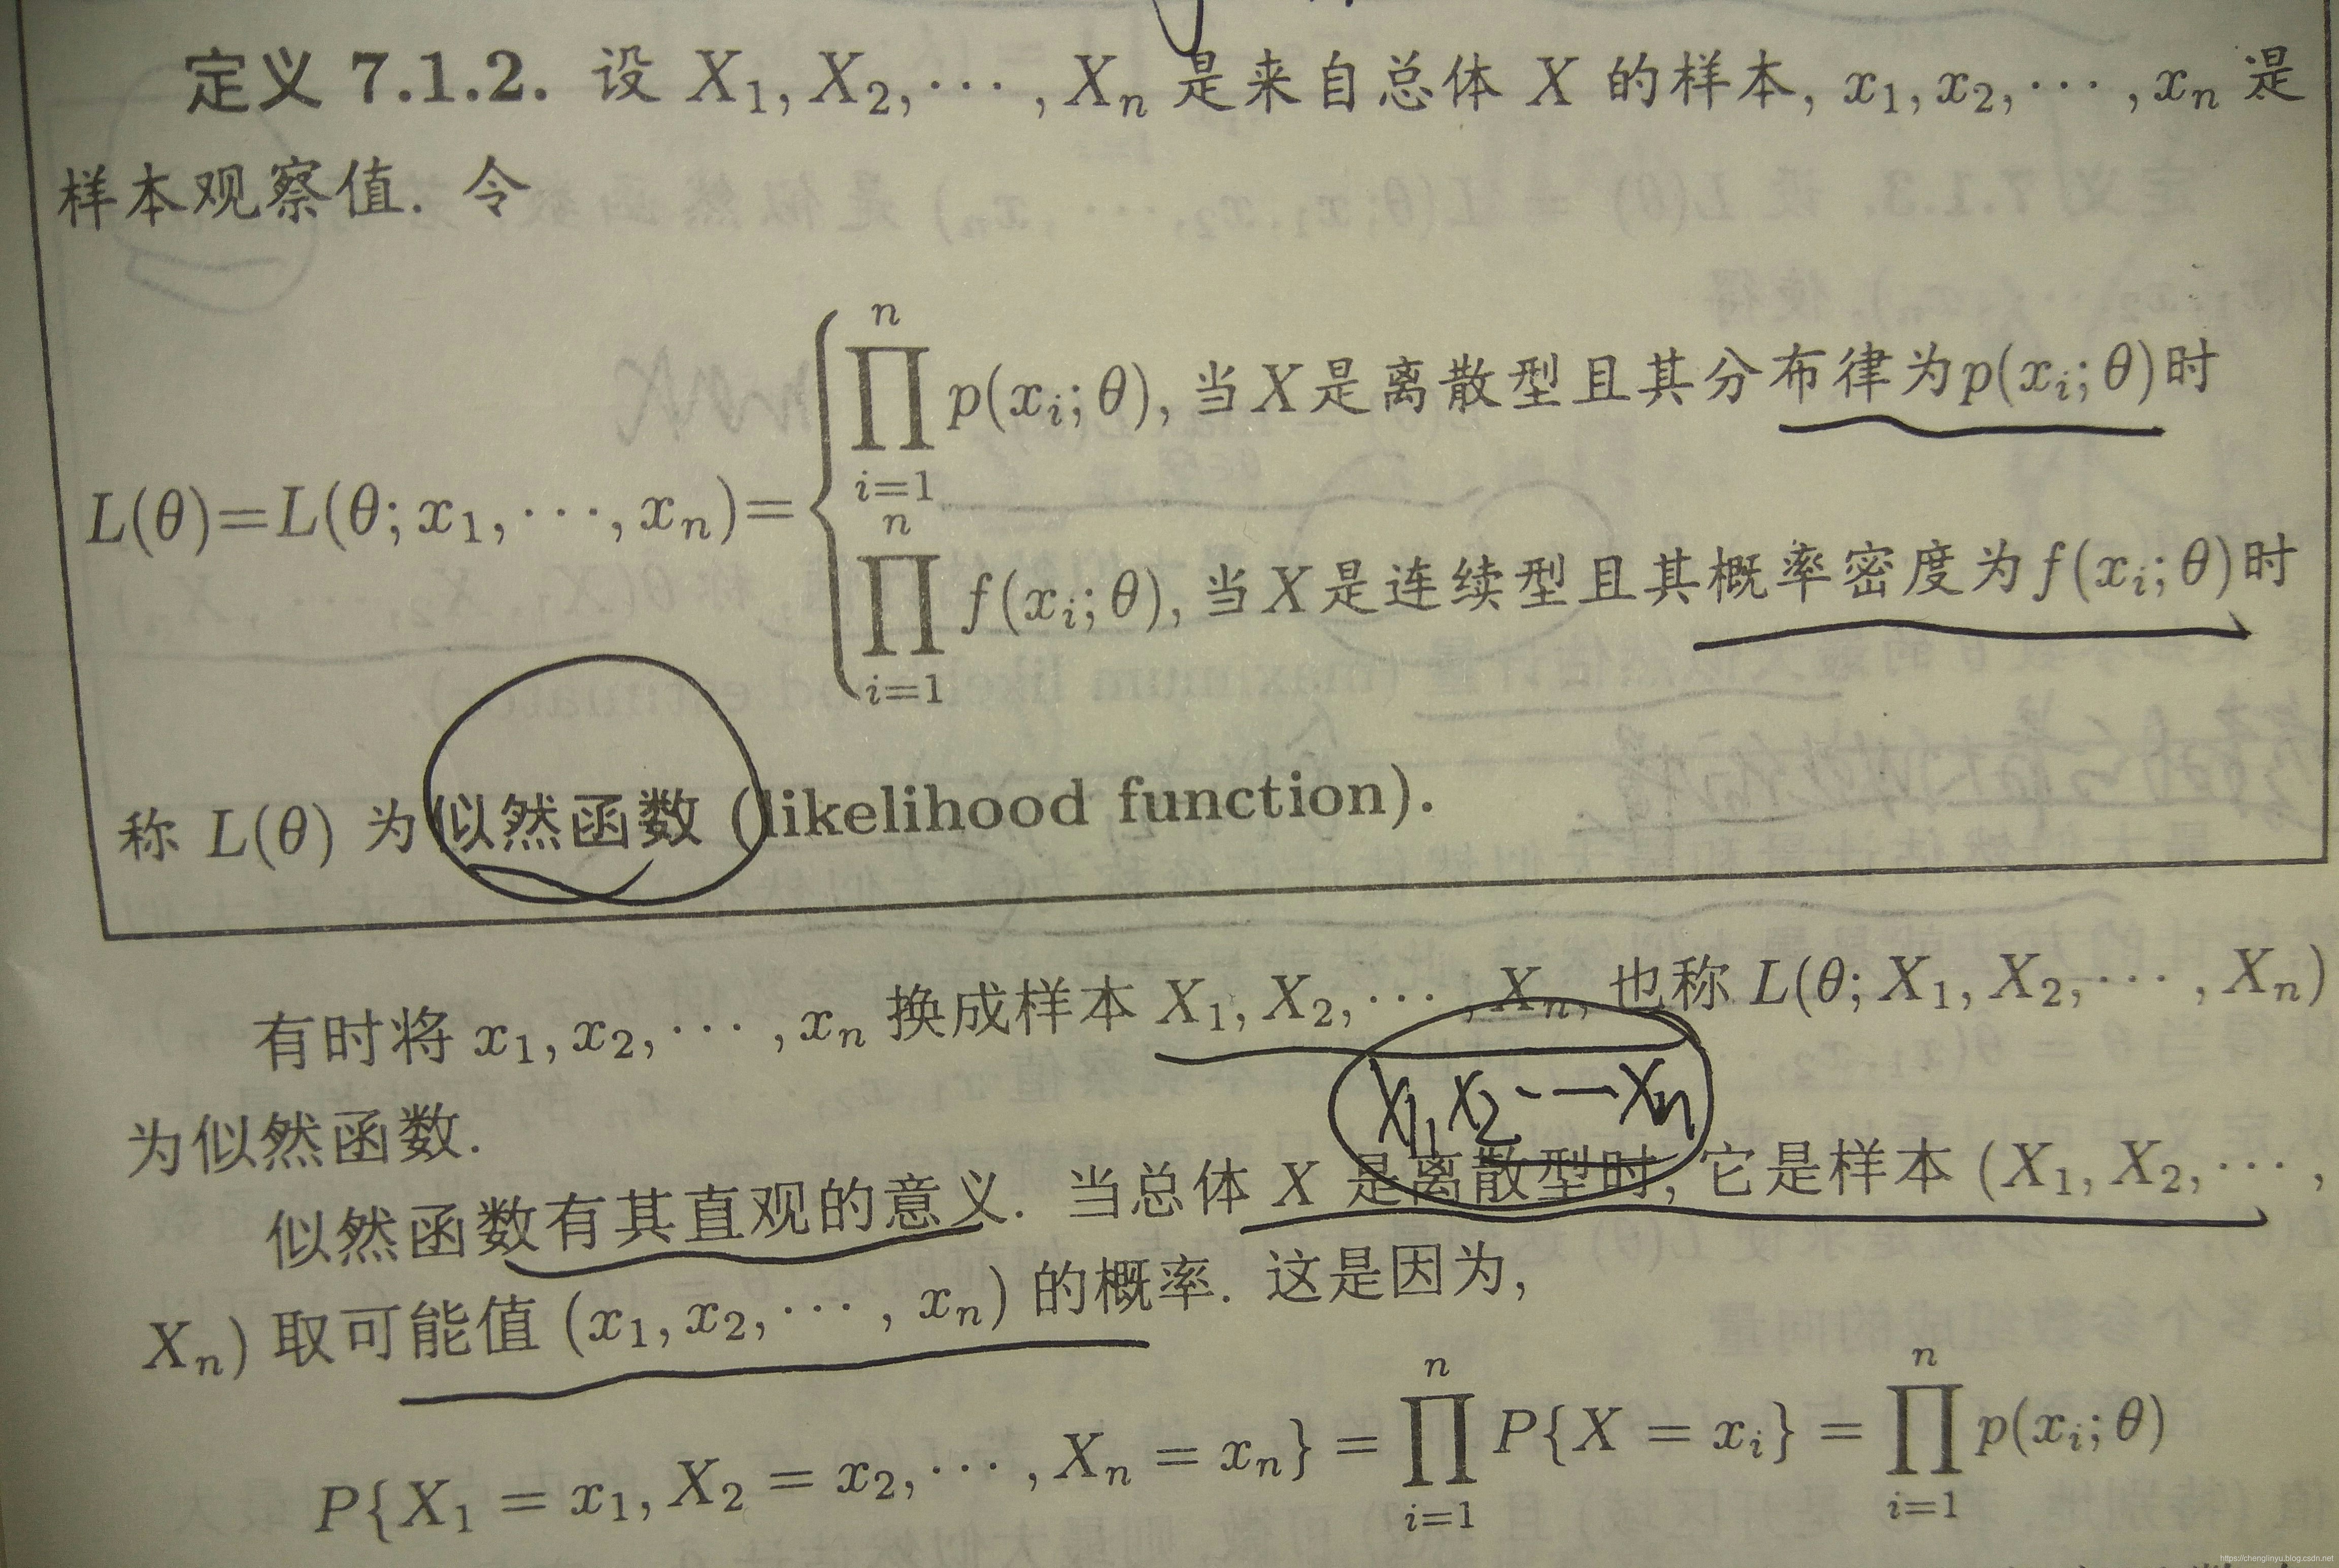 定义 7.1.2. 设 X₁, X₂, ⋯ , Xₙ 是来自总体 X 的样本, x₁, x₂, ⋯ , xₙ 是
样本观察值. 令
L(θ)=L(θ; x₁, ⋯, xₙ)={
∏ⁿᵢ₌₁ p(xᵢ; θ), 当X是离散型且其分布律为p(xᵢ; θ)时
∏ⁿᵢ₌₁ f(xᵢ; θ), 当X是连续型且其概率密度为f(xᵢ; θ)时
称 L(θ) 为似然函数 (likelihood function).
有时将 x₁, x₂, ⋯ , xₙ 换成样本 X₁, X₂, ⋯ , Xₙ, 也称 L(θ; X₁, X₂, ⋯ , Xₙ)
X₁, X₂ ⋯ Xₙ
为似然函数.
似然函数有其直观的意义. 当总体 X 是离散型时, 它是样本 (X₁, X₂, ⋯ ,
Xₙ) 取可能值 (x₁, x₂, ⋯ , xₙ) 的概率. 这是因为,
P{X₁ = x₁, X₂ = x₂, ⋯ , Xₙ = xₙ} = ∏ⁿᵢ₌₁ P{X = xᵢ} = ∏ⁿᵢ₌₁ p(xᵢ; θ)
https://chenglinyu.blog.csdn.net